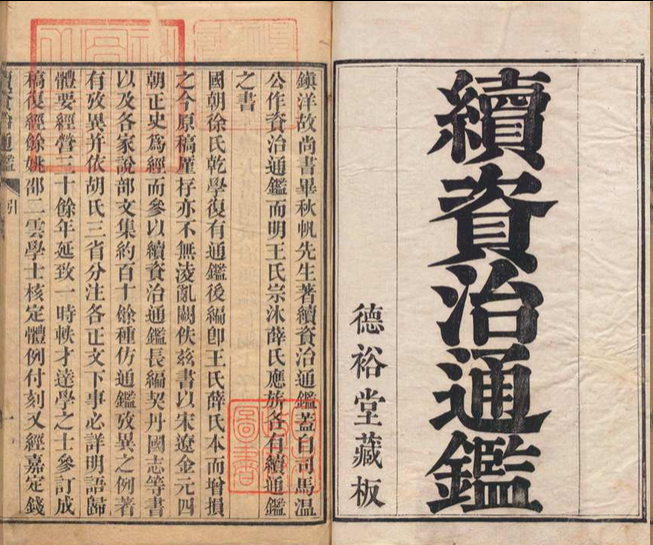 續資治通鑑
德裕堂藏板
鎮洋故尚書畢秋帆先生著續資治通鑑蓋自司馬溫
公作資治通鑑而明王氏宗沐薛氏應旂各有續通鑑
之書
國朝徐氏乾學復有通鑑後編卽王氏薛氏本而增損
之今原稿厪存亦不無淩亂闕佚茲書以宋遼金元四
朝正史爲經而參以續資治通鑑長編契丹國志等書
以及各家說部文集約百十餘種仿通鑑攷異之例著
有攷異并依胡氏三省分注各正文下事必詳明語歸
體要經營三十餘年延致一時軼才達學之士參訂成
稿復經餘姚邵二雲學士核定體例付刻又經嘉定錢
續資治通鑑
引
一
圖書